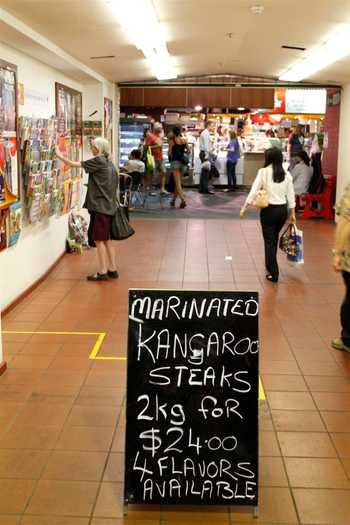 MARINATED
KANGAROO
STEAKS
2kg foR
$24.00
4 FLAVORS
AVAILABLE